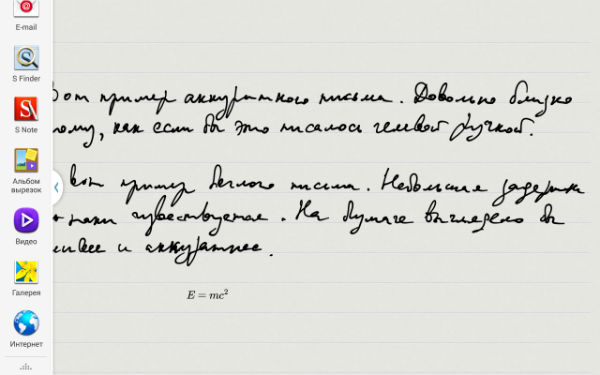 E-mail
S Finder
S Note
Альбом
вырезок
Видео
Галерея
Интернет
Вот пример аккуратного письма. Довольно близко
тому, как если бы это писалось гелевой ручкой.
вот пример беглого письма. Небольшая задержка
таки чувствуется. На бумаге выглядело бы
и аккуратнее.
E = mc²